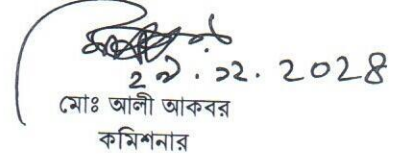 ২৯.১২.২০২৪
মোঃ আলী আকবর
কমিশনার